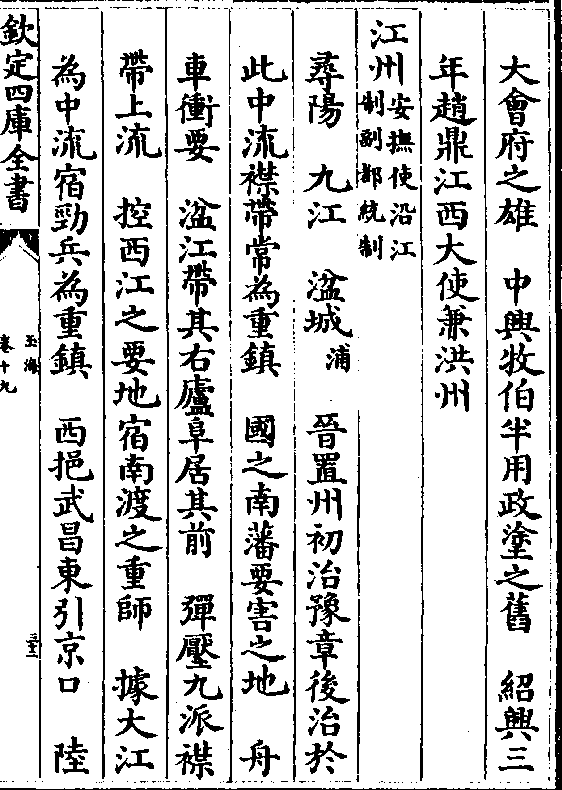 大會府之雄　中興牧伯半用政塗之舊　紹興三
年趙鼎江西大使兼洪州
江州安撫使沿江制副都統制
尋陽　九江　湓城浦　晉置州初治豫章後治於
此中流襟帶常為重鎮　國之南藩要害之地　舟
車衝要　湓江帶其右廬阜居其前　彈壓九派襟
帶上流　控西江之要地宿南渡之重師　據大江
為中流宿勁兵為重鎮　西挹武昌東引京口　陸
欽定四庫全書
玉海
卷十九